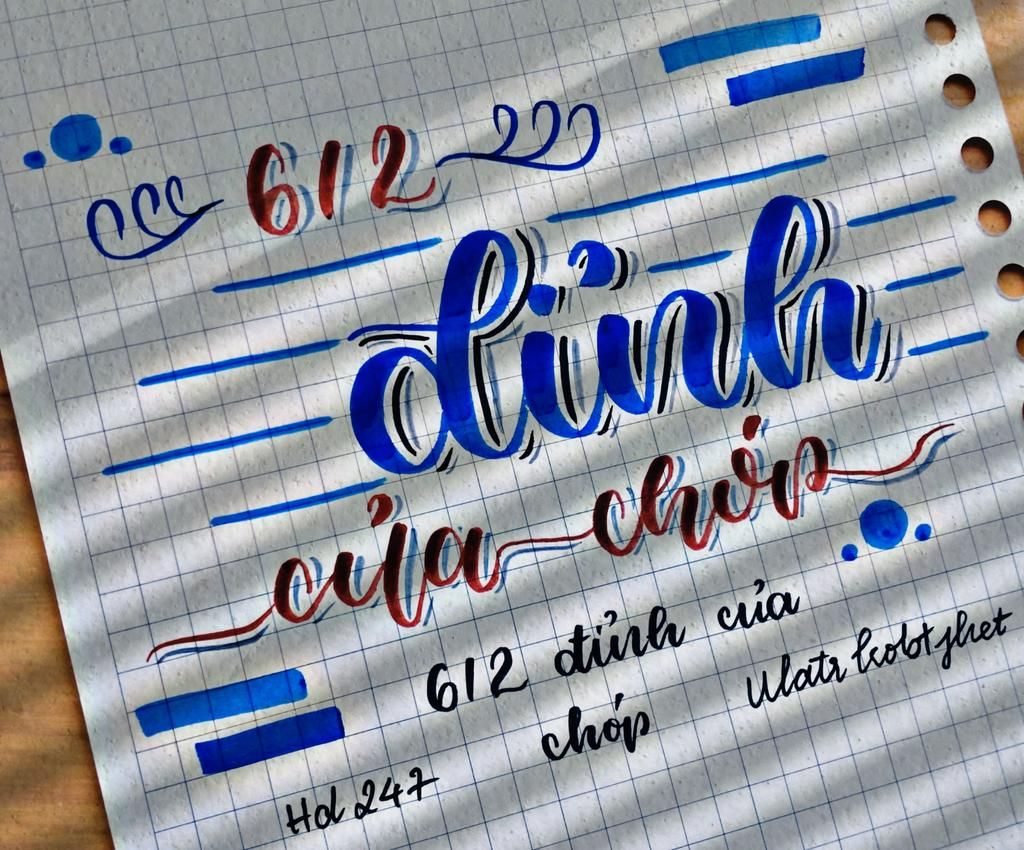 612
đỉnh
của chóp
612 đỉnh của
chóp
Hd 247